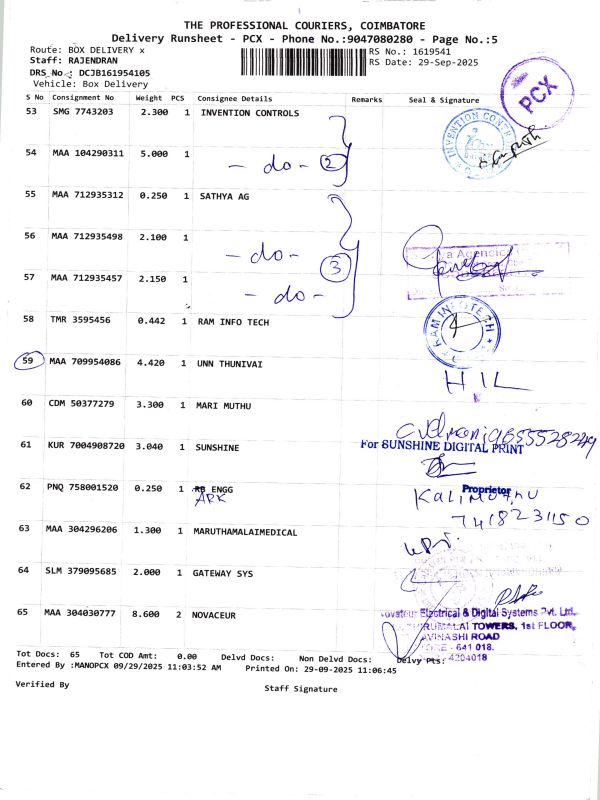 THE PROFESSIONAL COURIERS, COIMBATORE
Delivery Runsheet - PCX - Phone No.:9047080280 - Page No.:5
Route: BOX DELIVERY x
RS No.: 1619541
Staff: RAJENDRAN
RS Date: 29-Sep-2025
DRS_No.: DCJB161954105
Vehicle: Box Delivery
PCX
S No Consignment No Weight PCS Consignee Details Remarks Seal & Signature
53 SMG 7743203 2.300 1 INVENTION CONTROLS
INVENTION CONTR
54 MAA 104290311 5.000 1
- do - 2
55 MAA 712935312 0.250 1 SATHYA AG
56 MAA 712935498 2.100 1
- do -
a Agencie
3
57 MAA 712935457 2.150 1
- do -
58 TMR 3595456 0.442 1 RAM INFO TECH
RAM INFOTECH
59 MAA 709954086 4.420 1 UNN THUNIVAI
HIL
60 CDM 50377279 3.300 1 MARI MUTHU
61 KUR 7004908720 3.040 1 SUNSHINE
For SUNSHINE DIGITAL PRINT
Proprietor
62 PNQ 758001520 0.250 1 RB ENGG
ARK
KALIMUTHU
7418231150
63 MAA 304296206 1.300 1 MARUTHAMALAIMEDICAL
64 SLM 379095685 2.000 1 GATEWAY SYS
65 MAA 304030777 8.600 2 NOVACEUR
ovateur Electrical & Digital Systems Pvt. Ltd.
RUMALAI TOWERS, 1st FLOOR,
AVINASHI ROAD
ORE - 641 018.
4204018
Tot Docs: 65 Tot COD Amt: 0.00 Delvd Docs: Non Delvd Docs: Delvy Pts:
Entered By :MANOPCX 09/29/2025 11:03:52 AM Printed On: 29-09-2025 11:06:45
Verified By
Staff Signature